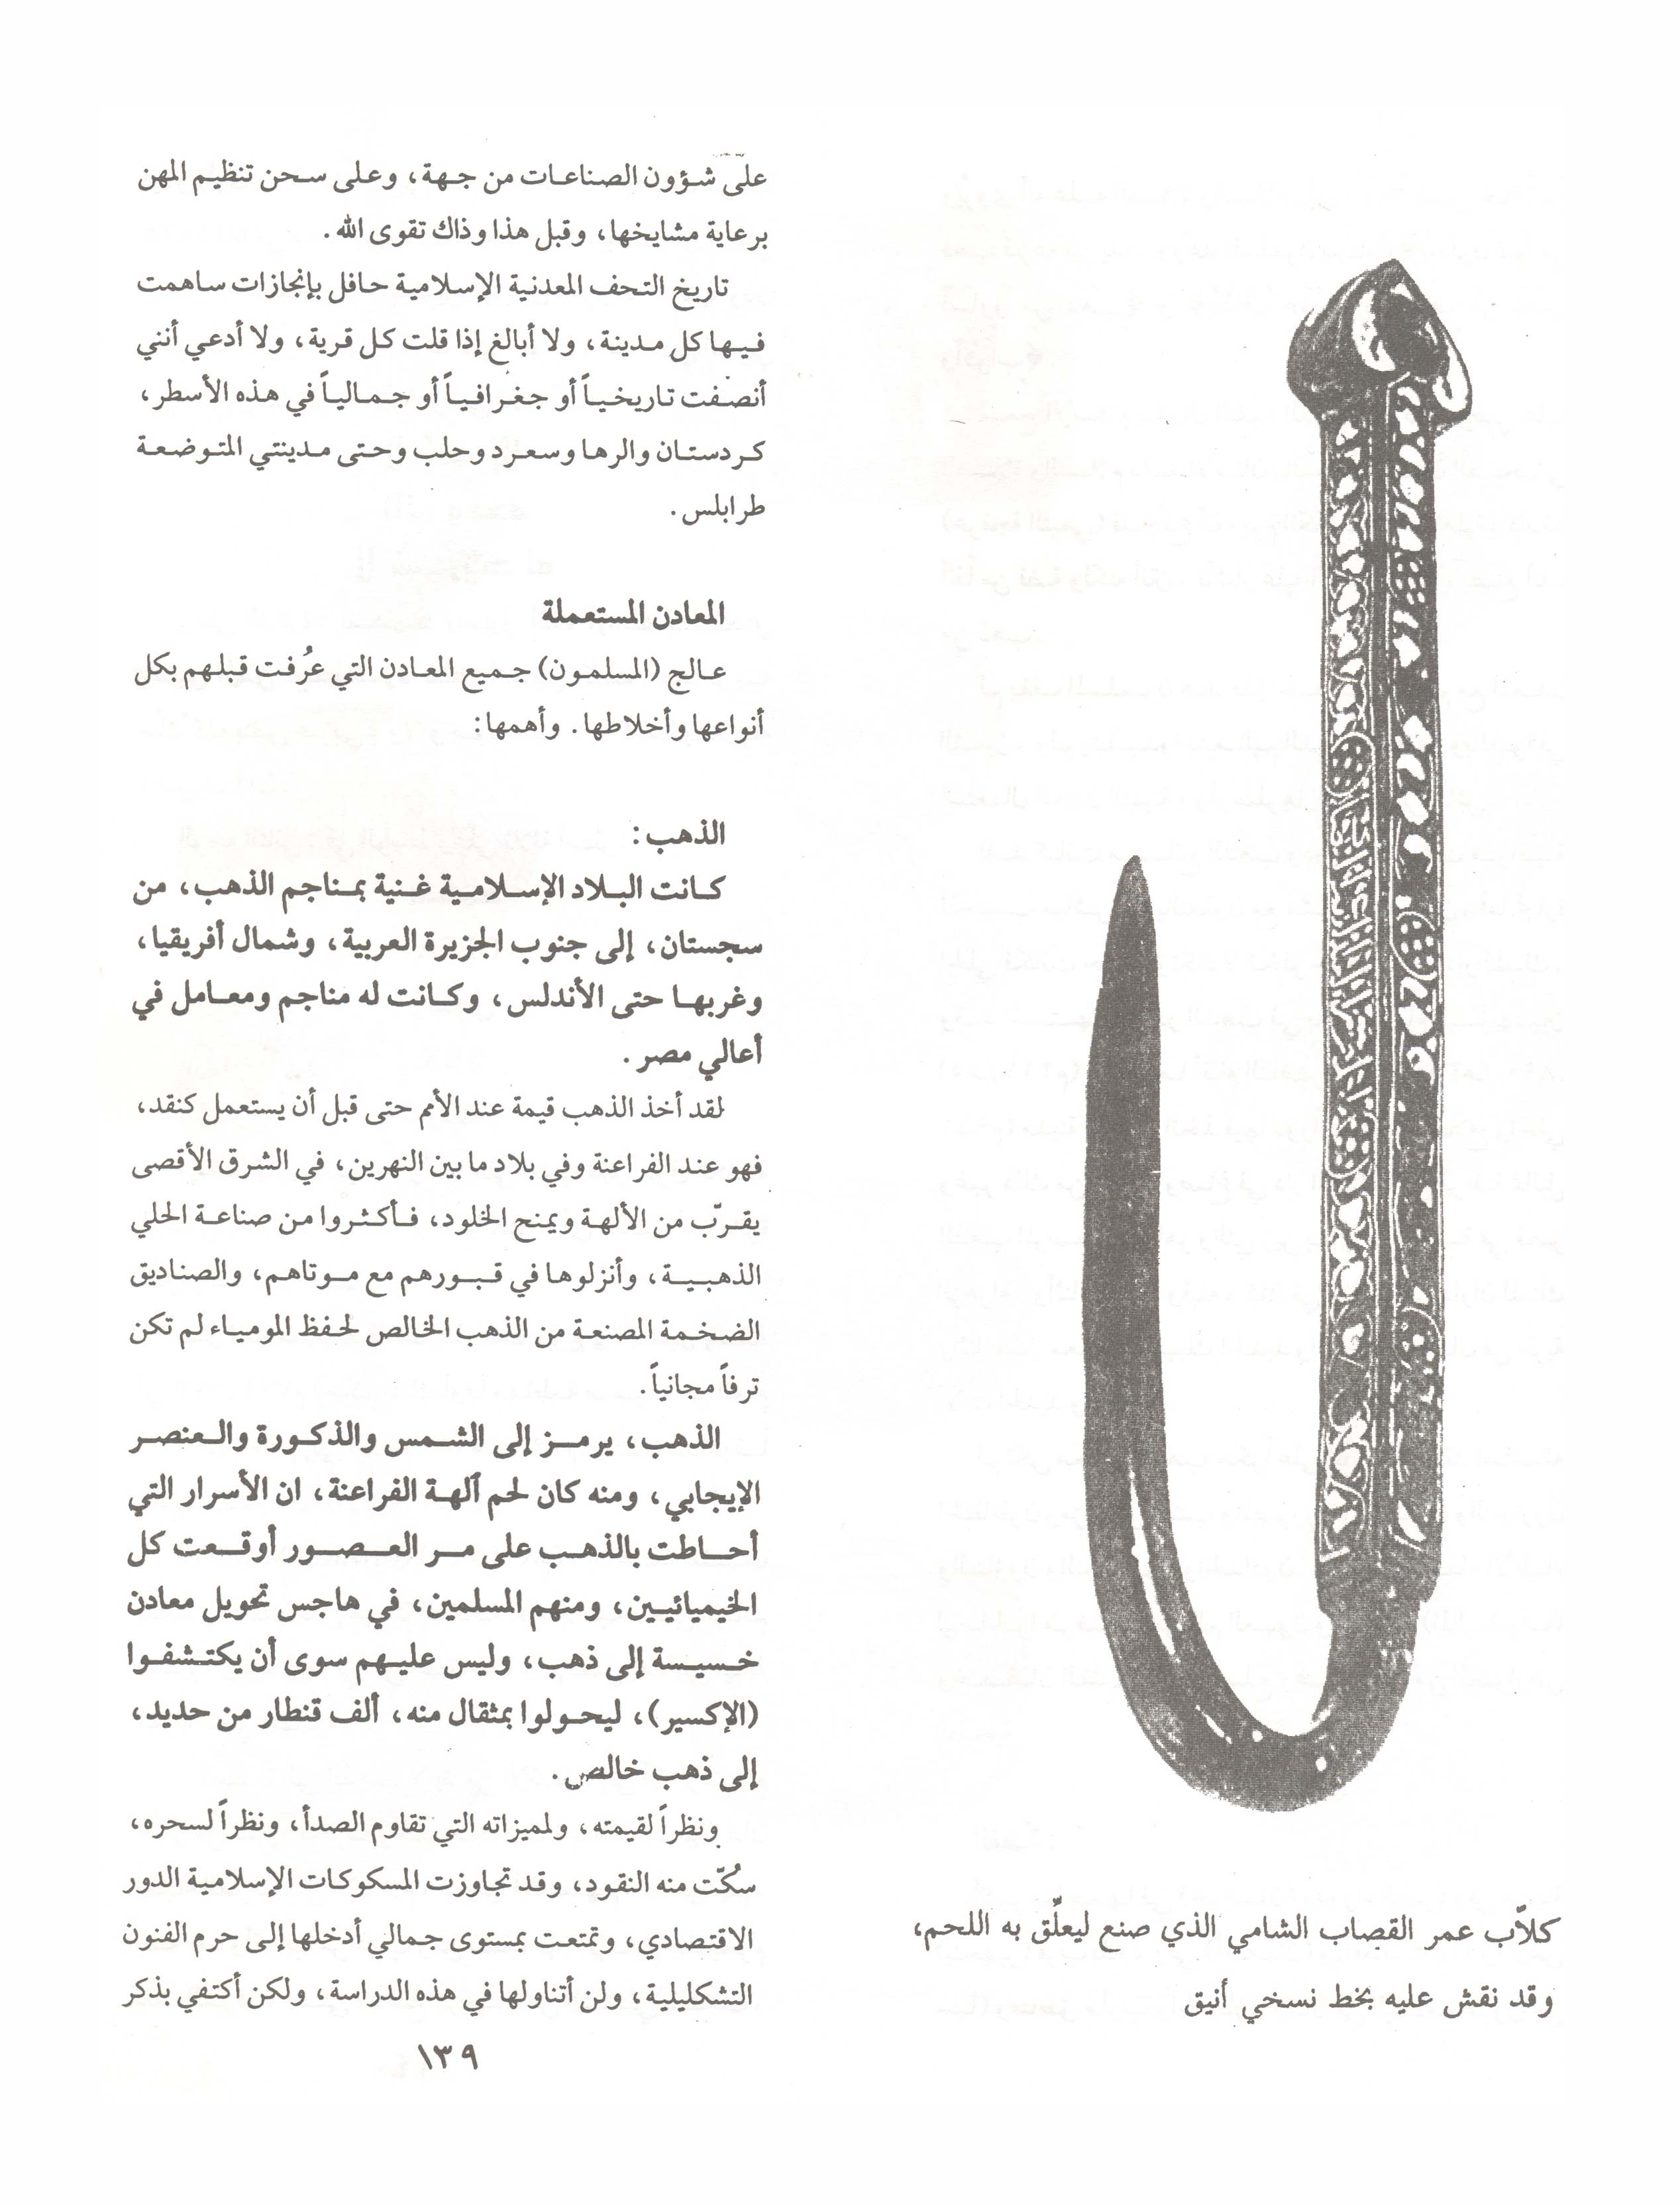 كلاّب عمر القصاب الشامي الذي صنع ليعلّق به اللحم،
وقد نقش عليه بخط نسخي أنيق
على شؤون الصناعات من جهة، وعلى سحن تنظيم المهن
برعاية مشايخها، وقبل هذا وذاك تقوى الله.
تاريخ التحف المعدنية الإسلامية حافل بإنجازات ساهمت
فيها كل مدينة، ولا أبالغ إذا قلت كل قرية، ولا أدعي أنني
أنصفت تاريخياً أو جغرافياً أو جمالياً في هذه الأسطر،
كردستان والرها وسعرد وحلب وحتى مدينتي المتوضعة
طرابلس.
المعادن المستعملة
عالج (المسلمون) جميع المعادن التي عُرفت قبلهم بكل
أنواعها وأخلاطها. وأهمها:
الذهب:
كانت البلاد الإسلامية غنية بمناجم الذهب، من
سجستان، إلى جنوب الجزيرة العربية، وشمال أفريقيا،
وغربها حتى الأندلس، وكانت له مناجم ومعامل في
أعالي مصر.
لقد أخذ الذهب قيمة عند الأمم حتى قبل أن يستعمل كنقد،
فهو عند الفراعنة وفي بلاد ما بين النهرين، في الشرق الأقصى
يقرّب من الألهة ويمنح الخلود، فأكثروا من صناعة الحلي
الذهبية، وأنزلوها في قبورهم مع موتاهم، والصناديق
الضخمة المصنعة من الذهب الخالص لحفظ المومياء لم تكن
ترفاً مجانياً.
الذهب، يرمز إلى الشمس والذكورة والعنصر
الإيجابي، ومنه كان لحم آلهة الفراعنة، ان الأسرار التي
أحاطت بالذهب على مر العصور أوقعت كل
الخيميائيين، ومنهم المسلمين، في هاجس تحويل معادن
خسيسة إلى ذهب، وليس عليهم سوى أن يكتشفوا
(الإكسير)، ليحولوا بمثقال منه، ألف قنطار من حديد،
إلى ذهب خالص.
ونظراً لقيمته، ولمميزاته التي تقاوم الصدأ، ونظراً لسحره،
سُكّت منه النقود، وقد تجاوزت المسكوكات الإسلامية الدور
الاقتصادي، وتمتعت بمستوى جمالي أدخلها إلى حرم الفنون
التشكليلية، ولن أتناولها في هذه الدراسة، ولكن أكتفي بذكر
١٣٩